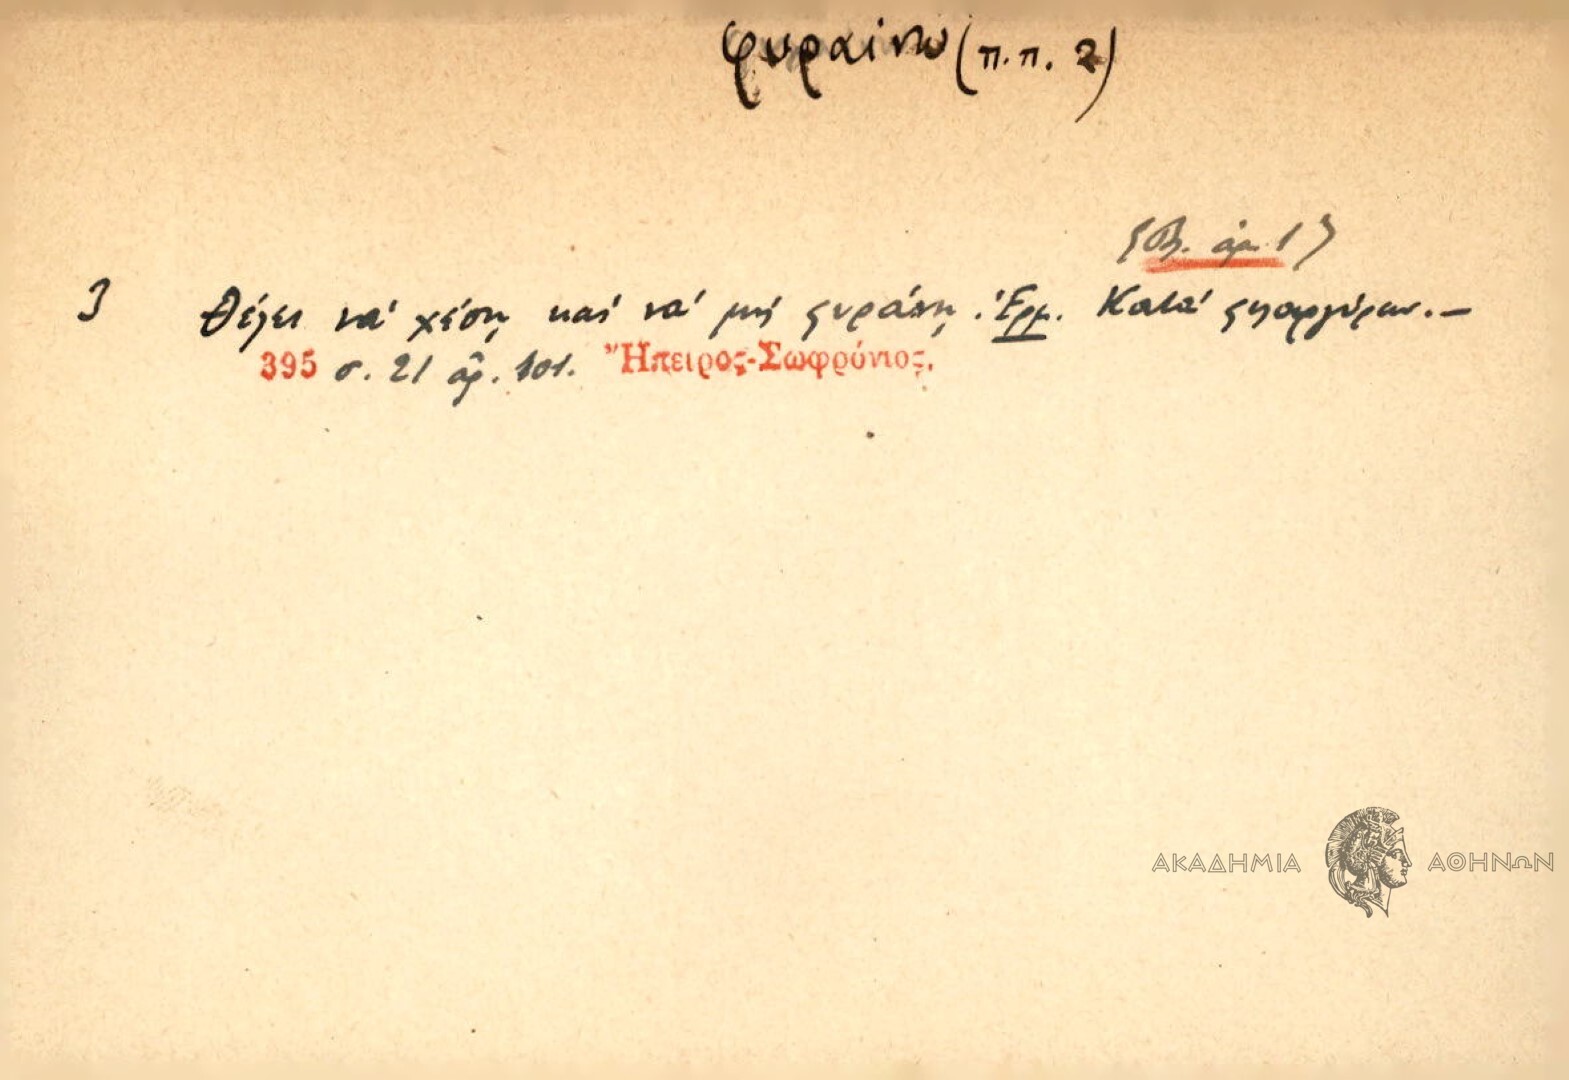 φυραίνω (π.π. 2)
{Βλ. ἀρ. 1}
3 Θέλει νά χέσῃ καί νά μή φυράνῃ. Ἑρμ. Κατά φιλαργύρων.—
395 σ. 21 ἀρ. 101. Ἤπειρος-Σωφρόνιος.
ΑΚΑΔΗΜΙΑ ΑΘΗΝΩΝ